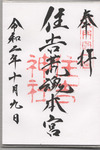 奉拝
住吉荒魂本宮
住吉
神社
令和二年十月九日